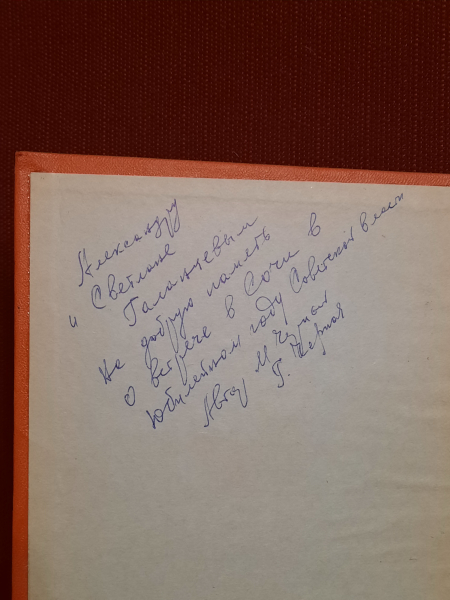 Александру
и Светлане
Галанцевым
На добрую память
о встрече в Сочи в
юбилейном году Советской власти
Автор М Черных
Г. Черная